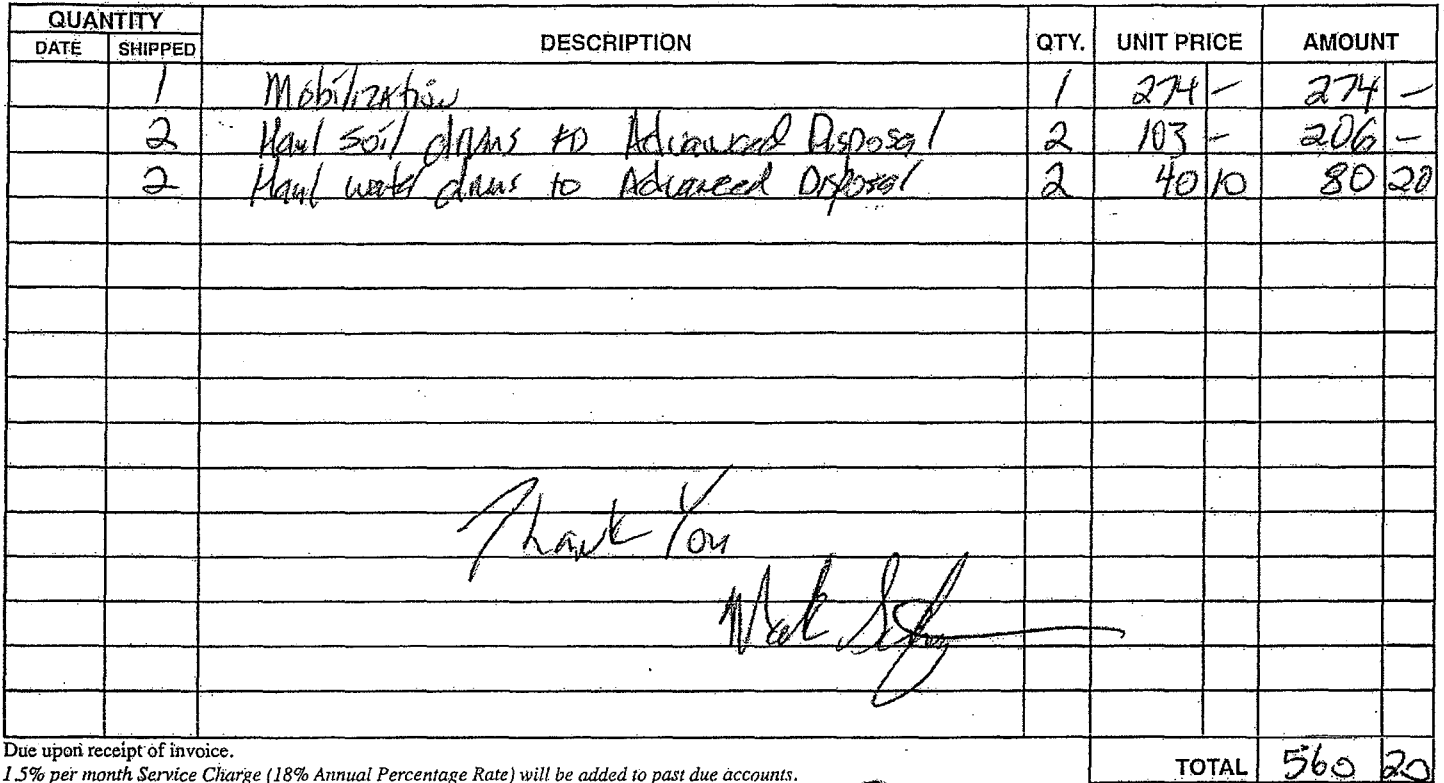 QUANTITY DESCRIPTION QTY. UNIT PRICE AMOUNT
DATE SHIPPED
1 Mobilization 1 274 - 274 -
2 Haul soil drums to Advanced Disposal 2 103 - 206 -
2 Haul water drums to Advanced Disposal 2 40 10 80 20
Thank You
Mark
Due upon receipt of invoice.
1.5% per month Service Charge (18% Annual Percentage Rate) will be added to past due accounts.
TOTAL 560 20